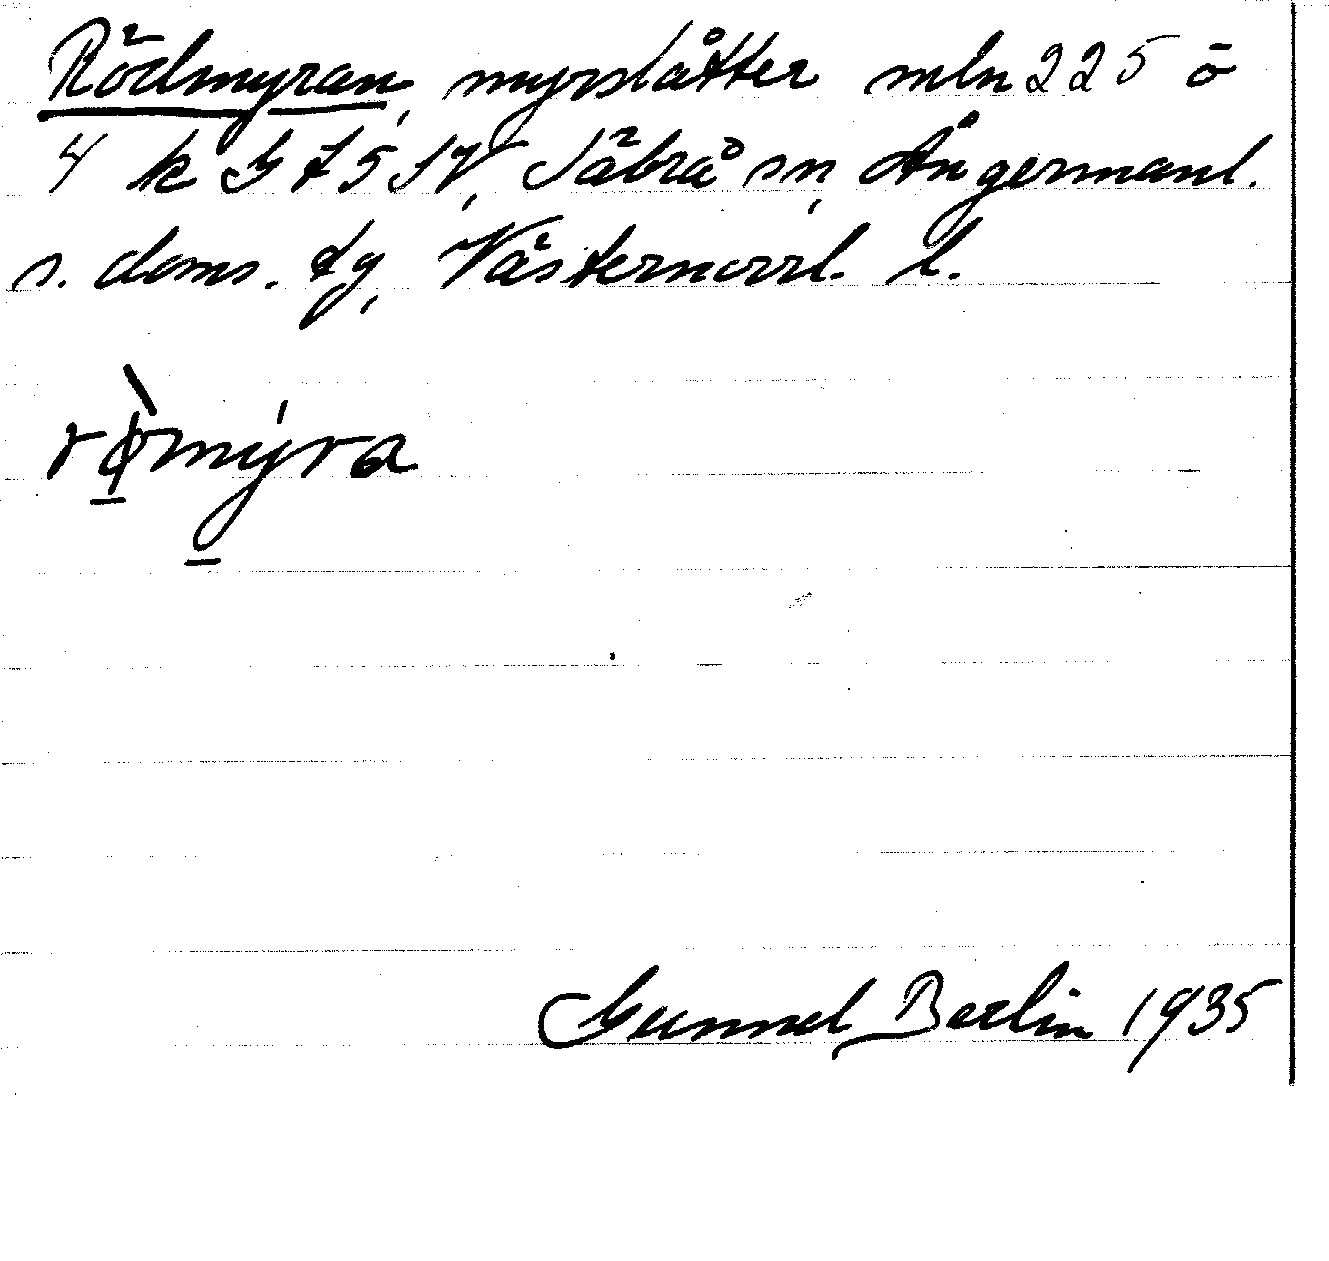 Rödmyran, myrslåtter mln 225 ō
4 k G 7 5 SV, Säbrå sn, Ångermanl.
s. doms. tg, Västernorrl. l.
rø̀mýra
Gunnel Berlin 1935